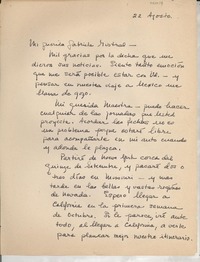 22 Agosto
Mi querida Gabriela Mistral –
Mil gracias por la dicha que me
dieron sus noticias. Siento tanta emoción
que me será posible estar con Ud. – y
pensar en nuestro viaje a Mexico me
llena de gozo.
Mi querida Maestra – puedo hacer
cualquiera de las jornadas que usted
proyecte. Tendré las fechas que no es
un problema porque estaré libre
para acompañarla en mi auto
y adonde le plazca.
Partiré de Nova York cerca del
quince de setiembre, y pasaré dos o
tres días en Missouri – y mas
tarde en los bellos y vastos
de Nevada. Espero llegar a
California en la primera semana
de Octubre. Si le parece, iré ante
todo, al llegar a California, a verte
para planear mejor nuestro itinerario.